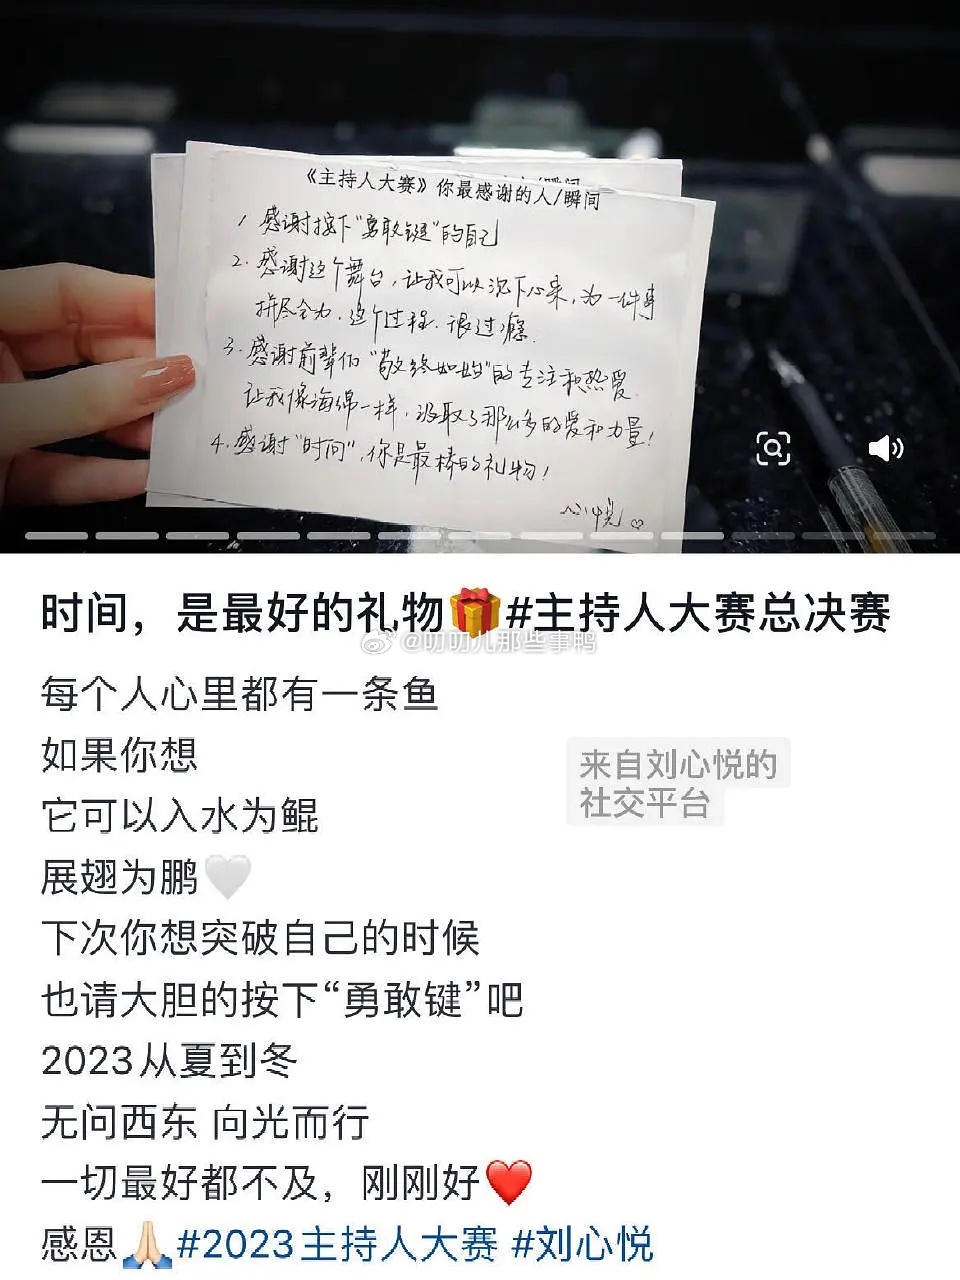 《主持人大赛》你最感谢的人/瞬间
1 感谢按下“勇敢键”的自己
2. 感谢这个舞台，让我可以沉下心来，为一件事
拼尽全力，这个过程，很过瘾.
3. 感谢前辈们“敬终如始”的专注和热爱.
让我像海绵一样，汲取了那么多的爱和力量！
4. 感谢“时间”，你是最棒的礼物！
心悦♡
时间，是最好的礼物🎁#主持人大赛总决赛
@叨叨儿那些事鸭
每个人心里都有一条鱼
如果你想
来自刘心悦的
社交平台
它可以入水为鲲
展翅为鹏🤍
下次你想突破自己的时候
也请大胆的按下“勇敢键”吧
2023从夏到冬
无问西东 向光而行
一切最好都不及，刚刚好❤️
感恩🙏🏻#2023主持人大赛 #刘心悦